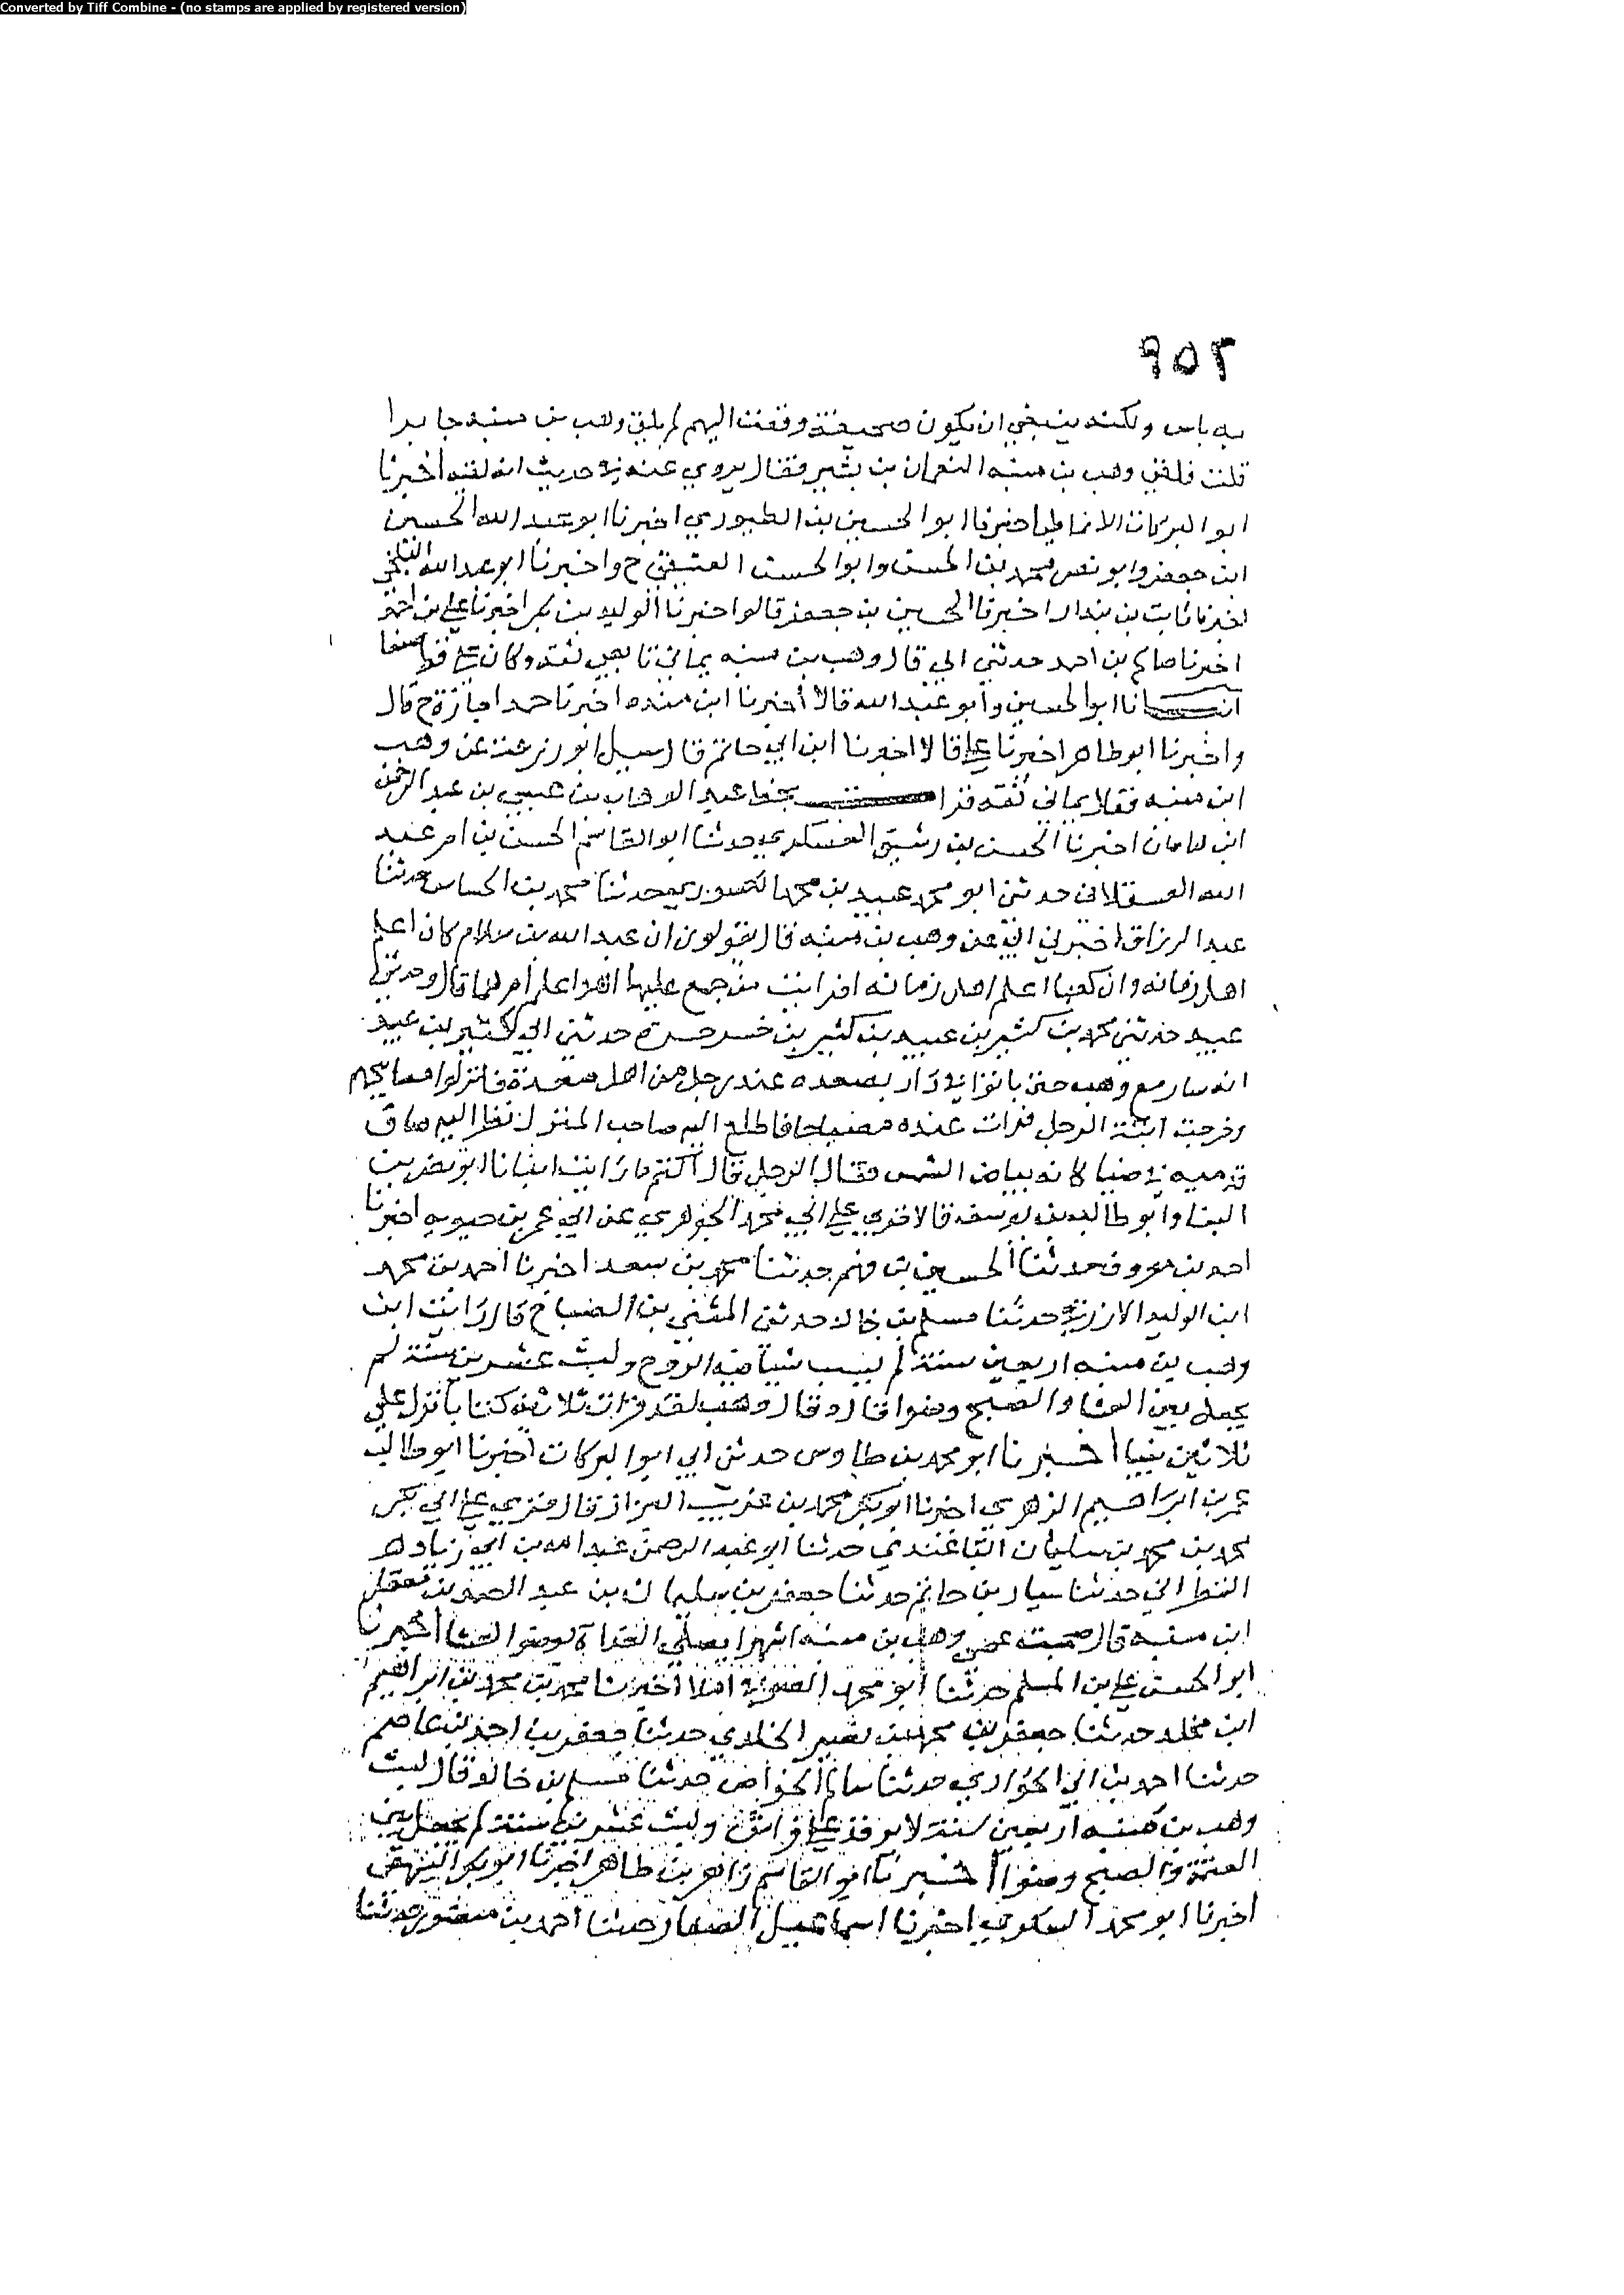 Converted by Tiff Combine - (no stamps are applied by registered version)
٩٥٢
به باس ولكنه ينبغي ان يكون صحيفة وقعت اليهم لم يلق وهب بن منبه جابرا
قلت فلقي وهب بن منبه النعمان بن بشير فقال يروي عنه في حديث انه لقيه اخبرنا
ابو البركات الانماطي اخبرنا ابو الحسين بن الطيوري اخبرنا ابو عبد الله الحسين
ابن جعفر وابو نصر محمد بن الحسن وابو الحسن العتيقي ح واخبرنا ابو عبد الله البلخي
اخبرنا ثابت بن بندار اخبرنا الحسين بن جعفر قالوا اخبرنا الوليد بن بكر اخبرنا علي بن احمد
اخبرنا صالح بن احمد حدثني ابي قال وهب بن منبه يماني تابعي ثقة وكان على قضا صنعا
انبانا ابو الحسين وابو عبد الله قالا اخبرنا ابن منده اخبرنا حمد اجازة ح قال
واخبرنا ابو طاهر اخبرنا علي قالا اخبرنا ابن ابي حاتم قال سيل ابو زرعة عن وهب
ابن منبه فقال يماني ثقة قرا بخط عبد الوهاب بن عيسى بن عبد الرحمن
ابن ماهان اخبرنا الحسن بن رشيق العسكري حدثنا ابو القاسم الحسن بن ادم عبيد
الله العسقلاني حدثني ابو محمد عبيد بن محمد الكشوري حدثنا محمد بن الحساس حدثنا
عبد الرزاق اخبرني ابي عن وهب بن منبه قال يقولون ان عبد الله بن سلام كان اعلم
اهل زمانه وان كعبا اعلم اهل زمانه افرايت من جمع علمهما اهو اعلم ام هما قال وحدثنا
عبيد حدثني محمد بن كثير بن عبيد بن كثير بن حدثني ابي كثير بن عبيد
انه سار مع وهب حتى باتوا في دار بصعده عند رجل من اهل صعدة فانزلوا مصابيحهم
وخرجت ابنة الرجل فرات عنده مصباحا فاطلع اليه صاحب المنزل نظر اليه صاف
قدميه في ضيا كانه بياض الشمس فقال الرجل قال اكتم ما رايت انبانا ابو نصر بن
البنا وابو طالب بن يوسف قالا قري على ابي محمد الجوهري عن ابي عمر بن حيويه اخبرنا
احمد بن معروف حدثنا الحسين بن فهم حدثنا محمد بن سعد اخبرنا احمد بن محمد
ابن الوليد الازرقي حدثنا مسلم بن خالد حدثني المثنى بن الصباح قال رايت ابن
وهب بن منبه اربعين سنة لم يسب شيا فيه الروح ولبث عشرين سنة لم
يجعل بين العشا والصبح وضوا قال وقال وهب لقد قرات ثلاثين كتابا نزل على
ثلاثين نبيا اخبرنا ابو محمد بن طاوس حدثني ابي ابو البركات اخبرنا ابو طالب
عمر بن ابراهيم الزهري اخبرنا ابو بكر محمد بن غريب البزاز قال قري على ابي بكر
محمد بن محمد بن سليمان الباغندي حدثنا ابو عبد الرحمن عبد الله بن ابي زياد هو
القطراني حدثنا سيار بن حاتم حدثنا جعفر بن سليمان بن عبد الصمد بن معقل
ابن منبه قال صحبت عمي وهب بن منبه اشهرا يصلي الغداة بوضو العشا اخبرنا
ابو الحسن علي بن المسلم حدثنا ابو محمد الصوفي املا اخبرنا محمد بن محمد بن ابراهيم
ابن مخلد حدثنا جعفر بن محمد بن نصير الخلدي حدثنا جعفر بن احمد بن عاصم
حدثنا احمد بن ابي الحواري حدثنا سالم الخواص حدثنا مسلم بن خالد قال لبث
وهب بن منبه اربعين سنة لا يرقد على فراش ولبث عشرين سنة لم يجعل بين
العتمة والصبح وضوا اخبرنا ابو القاسم زاهر بن طاهر اخبرنا ابو بكر البيهقي
اخبرنا ابو محمد السكري اخبرنا اسماعيل الصفار حدثنا احمد بن منصور حدثنا